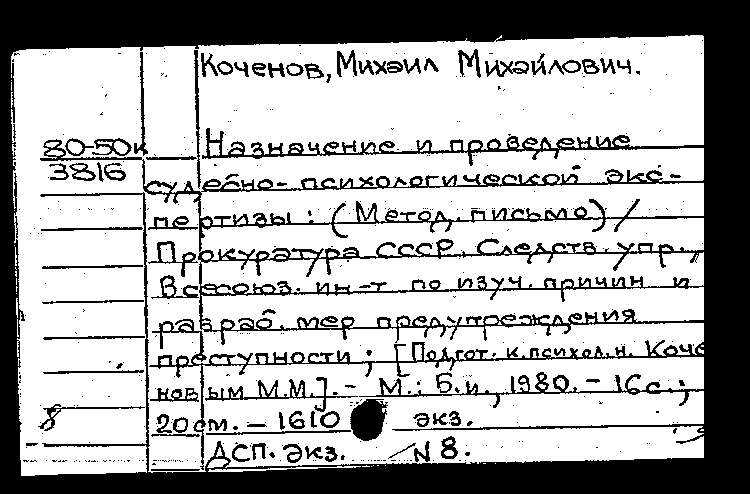 Коченов, Михаил Михайлович.
80-50к Назначение и проведение
3816
судебно-психологической экс-
пертизы: (Метод. письмо) /
Прокуратура СССР. Следств. упр.,
Всесоюз. ин-т по изуч. причин и
разраб. мер предупреждения
преступности; [Подгот. к. психол. н. Коче
новым М.М.]. - М.: Б.и., 1980. - 16с.;
8 20см. - 1610 экз.
ДСП. Экз. N 8.